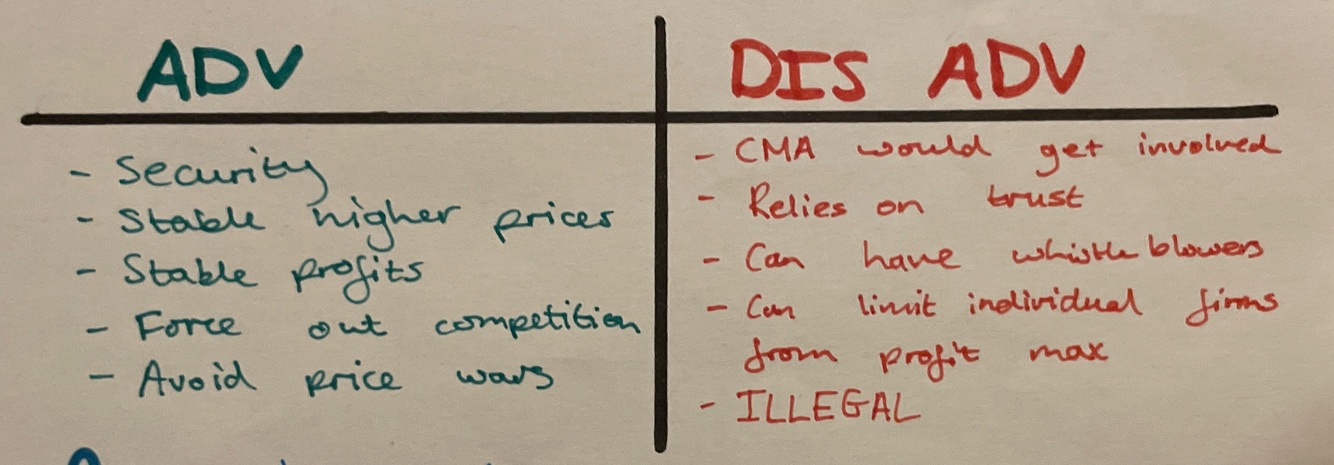 ADV
- Security
- Stable higher prices
- Stable profits
- Force out competition
- Avoid price wars
DIS ADV
- CMA would get involved
- Relies on trust
- Can have whistle blowers
- Can limit individual firms
from profit max
- ILLEGAL